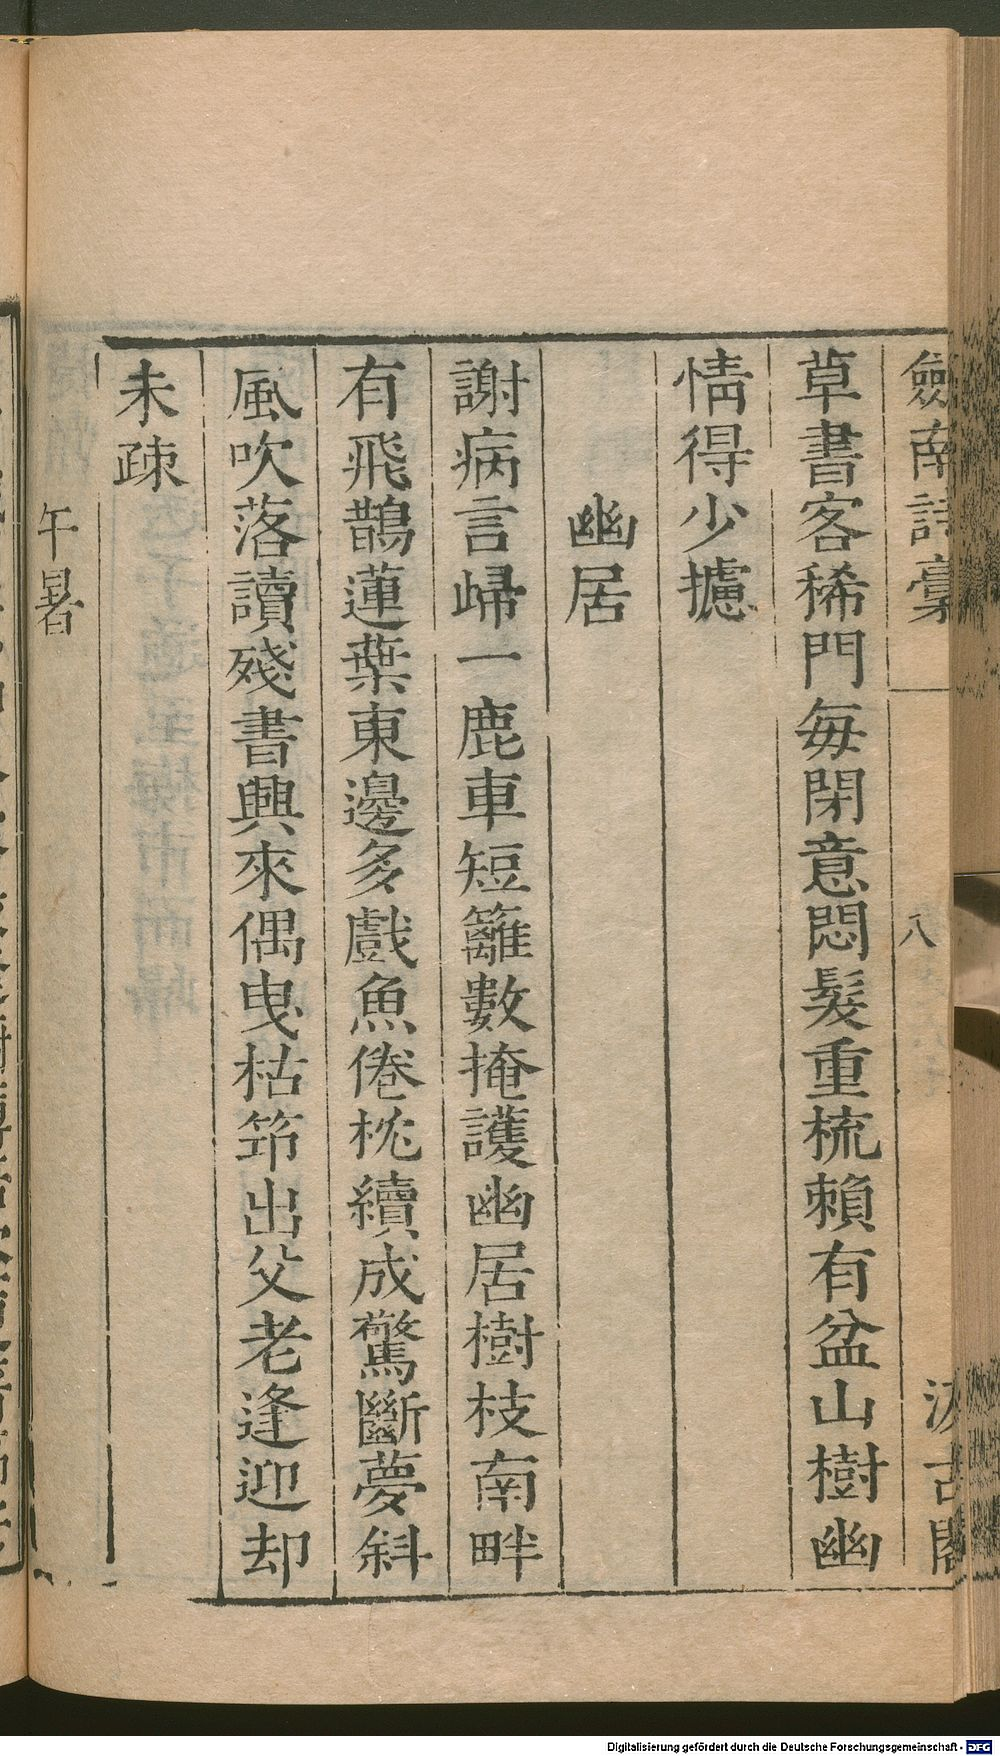 劒南詩藁
八
汲古閣
草書客稀門每閉意悶髮重梳賴有盆山樹幽
情得少攄
幽居
謝病言歸一鹿車短籬數掩護幽居樹枝南畔
有飛鵲蓮葉東邊多戲魚倦枕續成驚斷夢斜
風吹落讀殘書興來偶曳枯笻出父老逢迎却
未疎
午暑
Digitalisierung gefördert durch die Deutsche Forschungsgemeinschaft - DFG